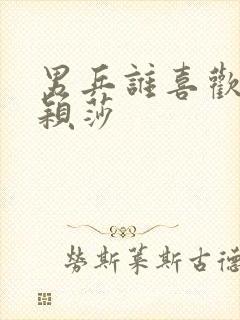 男乒誰喜歡
穎莎
勞斯萊斯古德